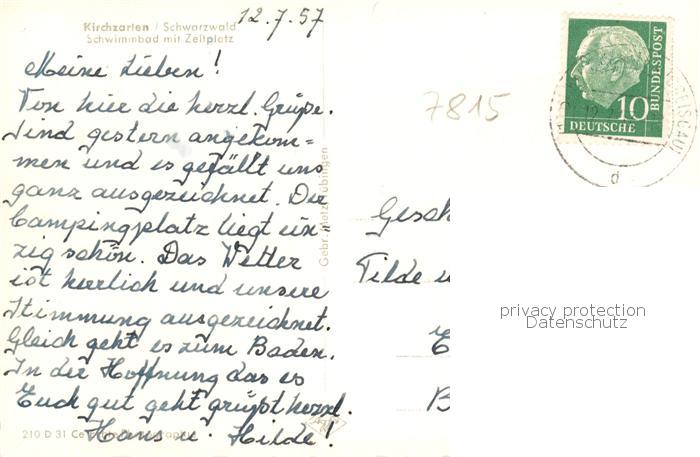 Kirchzarten / Schwarzwald
Schwimmbad mit Zeltplatz
12.7.57
Meine Lieben!
Von hier die herzl. Grüße.
Sind gestern angekom=
men und es gefällt uns
ganz ausgezeichnet. Der
Campingplatz liegt ein=
zig schön. Das Wetter
ist herrlich und unsere
Stimmung ausgezeichnet.
Gleich geht es zum Baden.
In der Hoffnung das es
Euch gut geht grüßt herzl.
Hans u. Hilde!
210 D 31
Gebr. Metz, Tübingen
7815
10
DEUTSCHE
BUNDESPOST
d
Gesch
Tilde u
E
B
privacy protection
Datenschutz